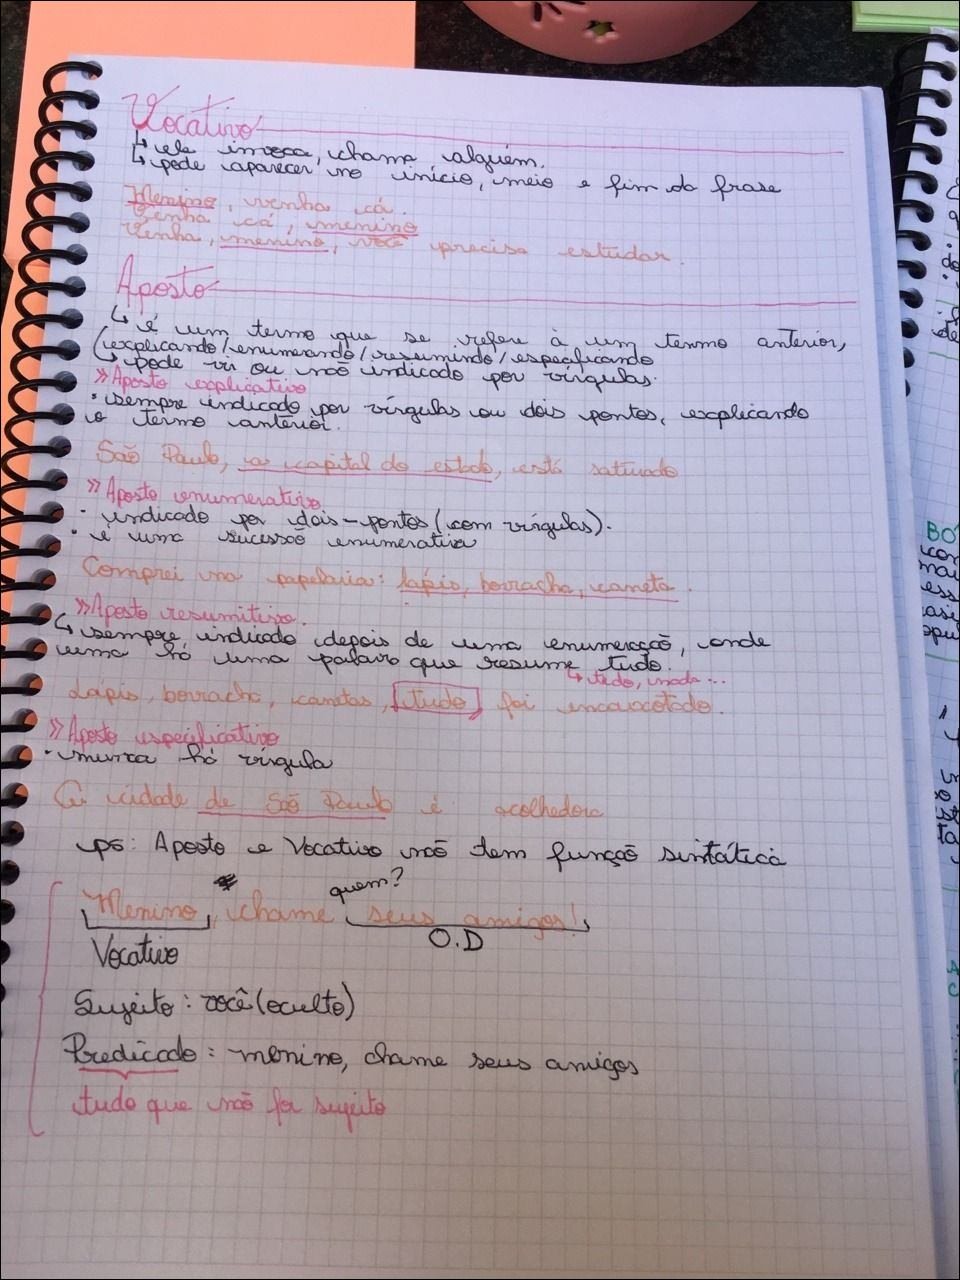 Vocativo
↳ ele invoca, chama alguém.
↳ pode aparecer no início, meio e fim da frase
Menino, venha cá.
Venha cá, menino
Venha, menino, você precisa estudar.
Aposto
↳ é um termo que se refere à um termo anterior,
(explicando/enumerando/resumindo/especificando
↳ pode vir ou não indicado por vírgulas.
» Aposto explicativo
• sempre indicado por vírgulas ou dois pontos, explicando
o termo anterior.
São Paulo, a capital do estado, está saturado
» Aposto enumerativo
• indicado por dois-pontos (com vírgulas).
• é uma sucessão enumerativa
Comprei na papelaria: lápis, borracha, caneta.
» Aposto resumitivo.
↳ sempre indicado depois de uma enumeração, onde
uma há uma palavra que resume tudo.
↳ tudo, nada...
Lápis, borracha, canetas, tudo foi encaixotado.
» Aposto especificativo
• nunca há vírgula
A cidade de São Paulo é acolhedora
ps: Aposto e Vocativo não tem função sintática
quem?
Menino, chame seus amigos!
O.D
Vocativo
Sujeito: você (oculto)
Predicado: menino, chame seus amigos
tudo que não for sujeito